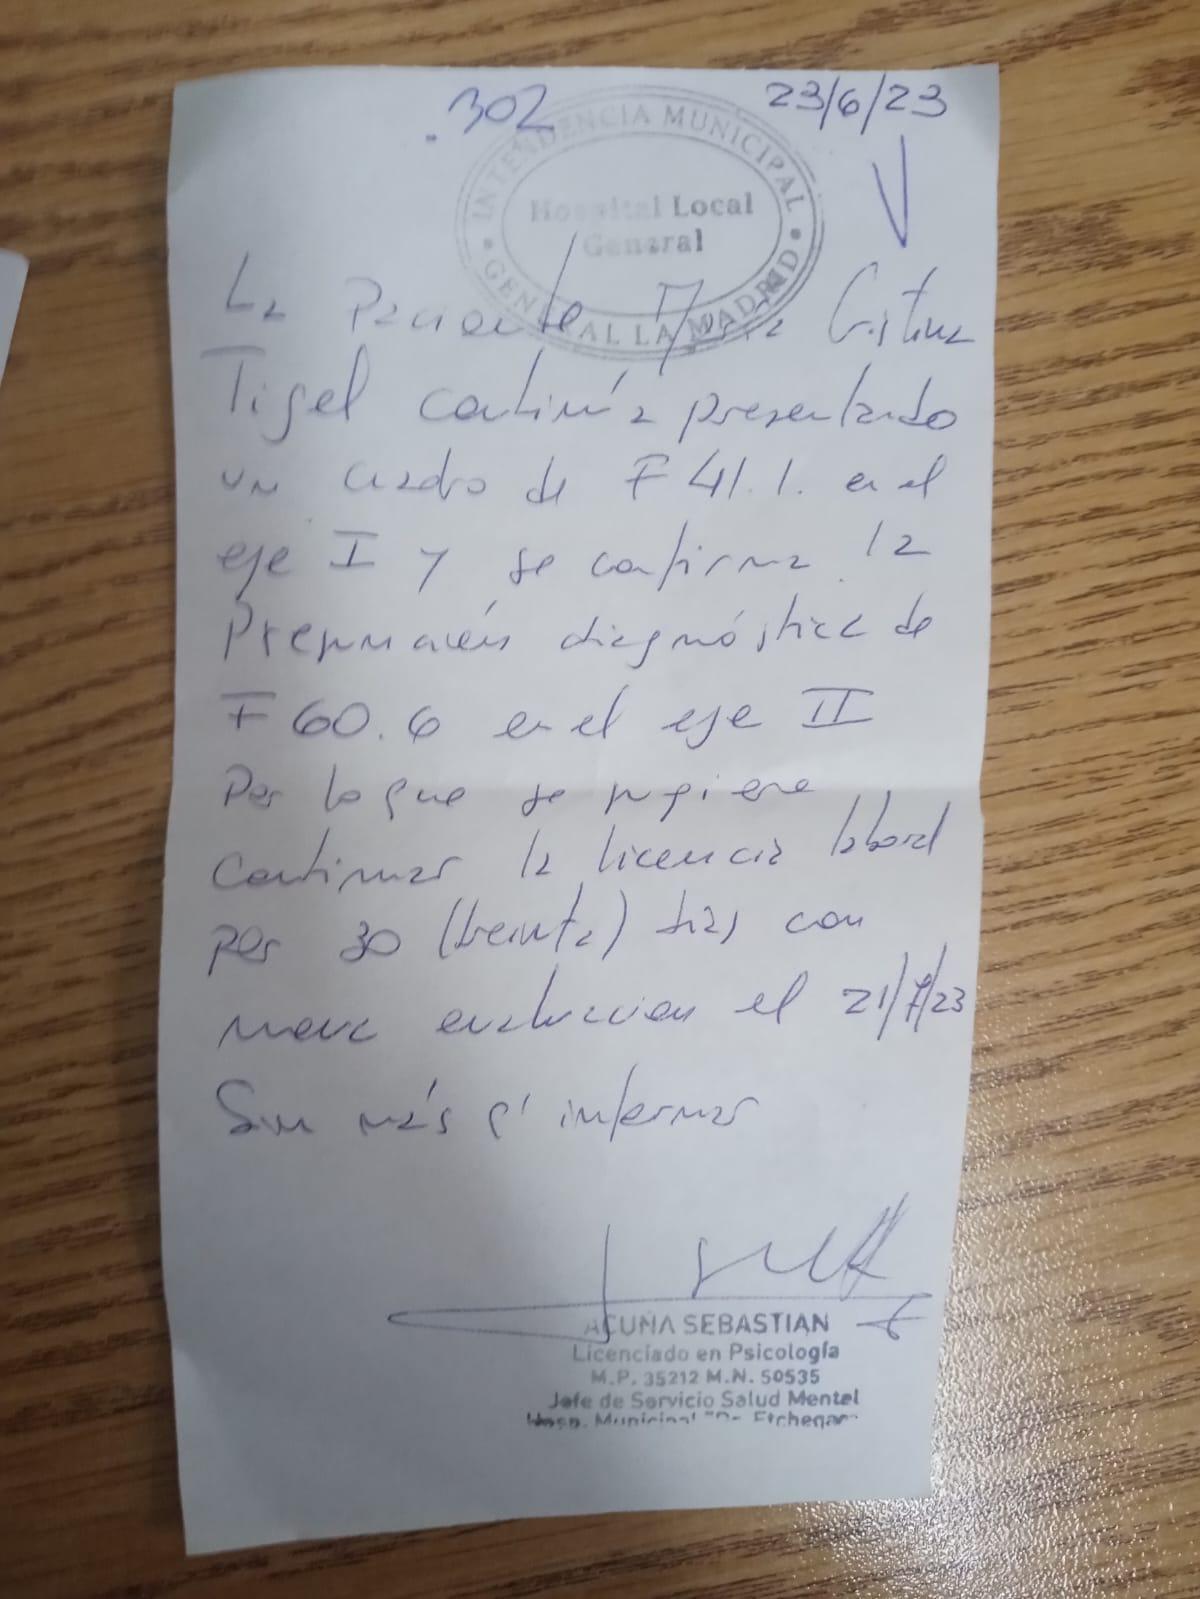 .302
23/6/23
INTENDENCIA MUNICIPAL
Hospital Local
General
GENERAL LA MADRID
La Paciente María Cristina
Tisel continúa presentando
un cuadro de F 41.1. en el
eje I y se confirma la
Presunción diagnóstica de
F 60.6 en el eje II
Por lo que se sugiere
continuar la licencia laboral
por 30 (treinta) días con
nueva evaluación el 21/7/23
Sin más p' informar
ACUÑA SEBASTIAN
Licenciado en Psicología
M.P. 35212 M.N. 50535
Jefe de Servicio Salud Mental
Hosp. Municipal "Dr. Etchegar